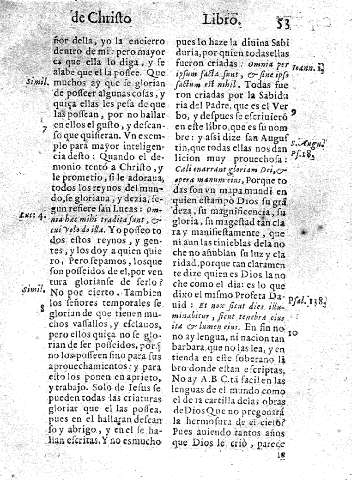 de Christo Libro. 53
ñor della, yo la encierro
dentro de mi: pero mayor
es que ella lo diga, y se
alabe que èl la possee. Que
muchos ay que se glorian
de posseer algunas cosas, y
quiça ellas les pesa de que
las possean, por no hallar
en ellos el gusto, y descan-
so que quisieran. Vn exem-
plo para mayor inteligen
cia desto: Quando el de-
monio tentò a Christo, y
le prometio, si le adoraua,
todos los reynos del mun-
do, se gloriaua, y dezia, se-
gun refiere san Lucas: Om-
nia hæc mihi tradita sunt, &
cui volo do illa. Yo posseo to
dos estos reynos, y gen-
tes, y los doy a quien quie
ro. Pero sepamos, los que
son posseidos de el, por ven
tura glorianse de serlo?
No por cierto. Tambien
los señores temporales se
glorian de que tienen mu-
chos vassallos, y esclauos,
pero ellos quiça no se glo-
rian de ser posseidos, por q̃
no los posseen sino para sus
aprouechamientos: y para
esto los ponen en aprieto,
y trabajo. Solo de Iesus se
pueden todas las criaturas
gloriar que el las possea,
pues en el hallaran descan
so y abrigo, y en el se ha-
llan escritas. Y no es mucho
Simil.
7
Luc. 4.
Simil.
8
pues lo haze la diuina Sabi
duria, por quien todas ellas
fueron criadas: Omnia per
ipsum facta sunt, & sine ipso
factum est nihil. Todas fue
ron criadas por la Sabidu
ria del Padre, que es el Ver
bo, y despues se escriuierō
en este libro, que es su nom
bre: y assi dize san Augus
tin, que todas ellas nos dan
licion muy prouechosa:
Cæli enarrant gloriam Dei, &
opera manuum eius. Porque to
das son vn mapa mundi en
quien estampò Dios su grā
deza, su magnificencia, su
gloria, su magestad tan cla
ra y manifiestamente, que
ni aun las tinieblas de la no
che no añublan su luz y cla
ridad, porque tan claramen
te dize quien es Dios la no
che como el dia: es lo que
dixo el mismo Profeta Da
uid: Et nox sicut dies illu-
minabitur, sicut tenebræ eius
ita & lumen eius. En fin no
ay lengua, ni nacion tan
barbara, que no las lea, y en
tienda en este soberano li
bro donde estan escriptas.
No ay A.B.C. tā facil en las
lenguas de el mundo como
el de la cartilla de las obras
de Dios Que no pregonarà
la hermosura de el cielo?
Pues auiendo tantos años
que Dios le criò, parece
Ioann. 1.
9
S. Augu
Psal. 138.
10